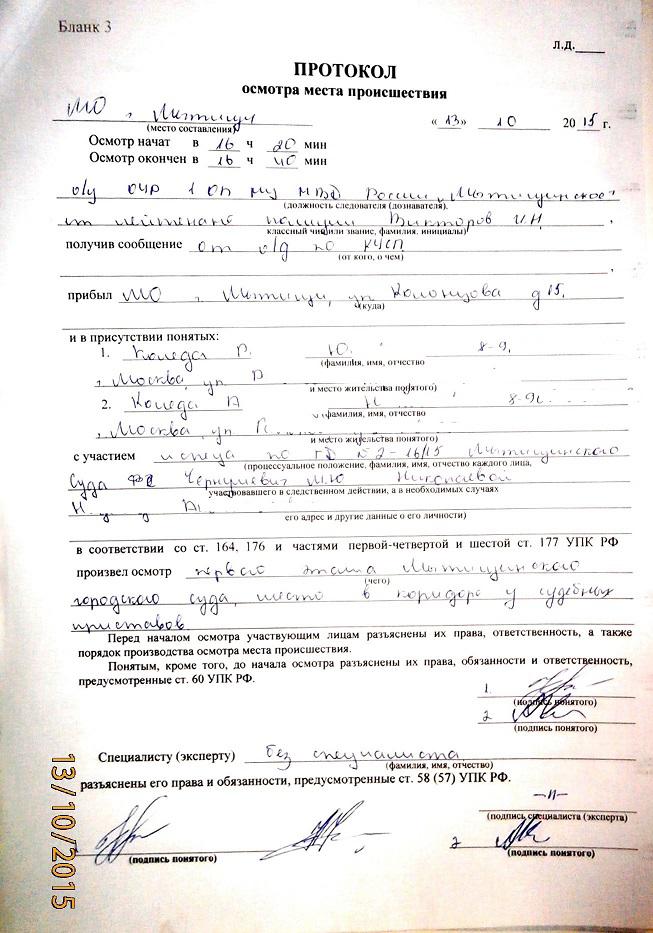 Бланк 3
Л.Д.____
ПРОТОКОЛ
осмотра места происшествия
МО г. Мытищи «13» 10 2015 г.
(место составления)
Осмотр начат в 16 ч 20 мин
Осмотр окончен в 16 ч 40 мин
о/у ОУР 1 ОП МУ МВД России "Мытищинское"
(должность следователя (дознавателя),
ст лейтенант полиции Викторов И.Н.
классный чин или звание, фамилия, инициалы)
получив сообщение от о/д по КУСП
(от кого, о чем)
прибыл МО г. Мытищи, ул Колонцова д 15.
(куда)
и в присутствии понятых:
1. Коледа Р. Ю. 8-9
(фамилия, имя, отчество
г. Москва, ул
и место жительства понятого)
2. Коледа А Н 8-9
фамилия, имя, отчество
г. Москва, ул
и место жительства понятого)
с участием истца по ГД №2-16/15 Мытищинского
(процессуальное положение, фамилия, имя, отчество каждого лица,
суда
участвовавшего в следственном действии, а в необходимых случаях
его адрес и другие данные о его личности)
в соответствии со ст. 164, 176 и частями первой-четвертой и шестой ст. 177 УПК РФ
произвел осмотр первого этажа Мытищинского
(чего)
городского суда, место в коридоре у судебных
приставов
Перед началом осмотра участвующим лицам разъяснены их права, ответственность, а также
порядок производства осмотра места происшествия.
Понятым, кроме того, до начала осмотра разъяснены их права, обязанности и ответственность,
предусмотренные ст. 60 УПК РФ.
1.
(подпись понятого)
2
(подпись понятого)
Специалисту (эксперту) без специалиста
(фамилия, имя, отчество)
разъяснены его права и обязанности, предусмотренные ст. 58 (57) УПК РФ.
-"-
(подпись специалиста (эксперта)
2
(подпись понятого) (подпись понятого)
13/10/2015